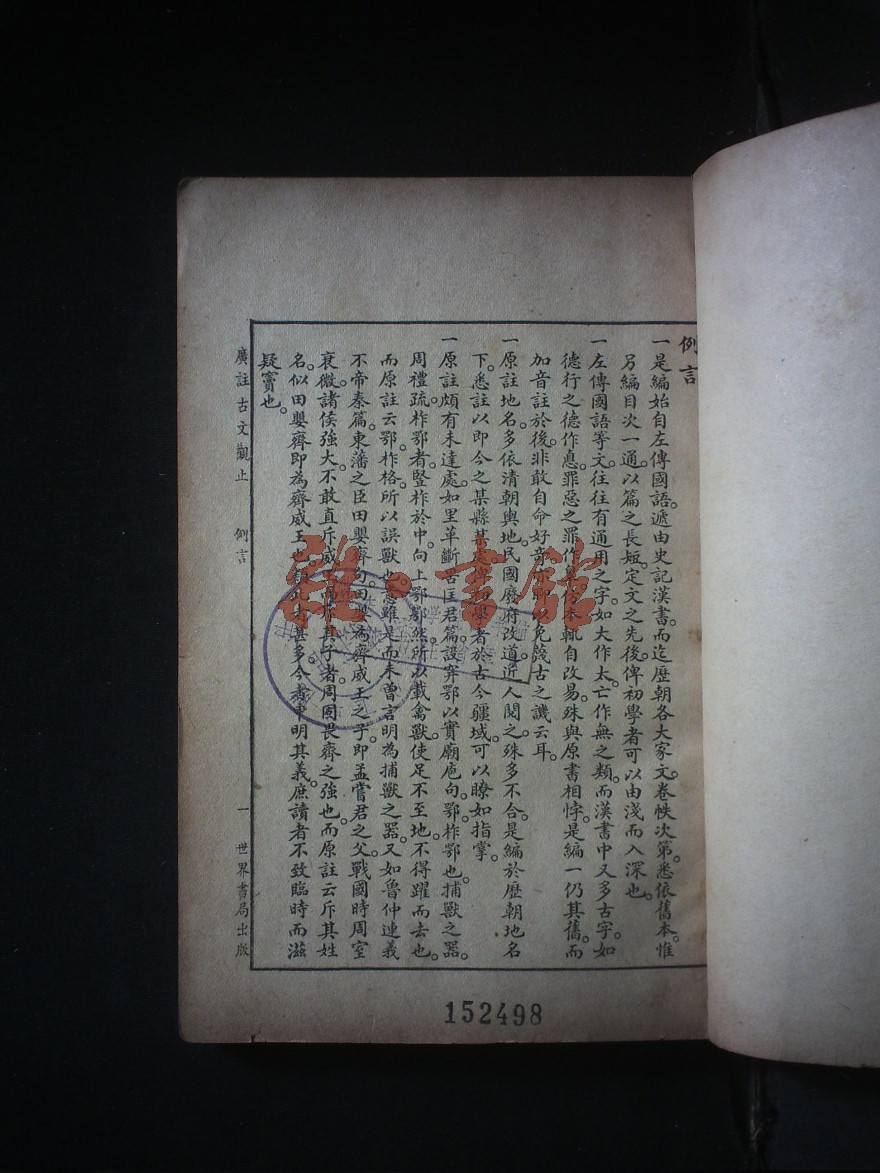 例言
一是編始自左傳國語。遞由史記漢書。而迄歷朝各大家文。卷帙次第。悉依舊本。惟
另編目次一通。以篇之長短。定文之先後。俾初學者可以由淺而入深也。
一左傳國語等文。往往有通用之字。如大作太。亡作無之類。而漢書中又多古字。如
德行之德作悳。罪惡之罪作辠。俗本輒自改易。殊與原書相悖。是編一仍其舊。而
加音註於後。非敢自命好奇。亦聊以免蔑古之譏云耳。
一原註地名。多依清朝輿地。民國廢府改道。近人閱之。殊多不合。是編於歷朝地名
下。悉註以即今之某縣某處。俾初學者於古今疆域。可以瞭如指掌。
一原註頗有未達處。如里革斷罟匡君篇。設穽鄂以實廟庖句。鄂。柞鄂也。捕獸之器。
周禮疏。柞鄂者。豎柞於中。向上鄂鄂然。所以載禽獸。使足不至地。不得躍而去也。
而原註云。鄂。柞格。所以誤獸也。意雖是。而未曾言明為捕獸之器。又如魯仲連義
不帝秦篇。東藩之臣田嬰齊句。田嬰為齊威王之子。即孟嘗君之父。戰國時周室
衰微。諸侯強大。不敢直斥威王而斥其子者。周固畏齊之強也。而原註云斥其姓
名。似田嬰齊即為齊威王也。類此者甚多。今者申明其義。庶讀者不致臨時而滋
疑竇也。
廣註古文觀止 例言 一 世界書局出版
雅·書館
152498